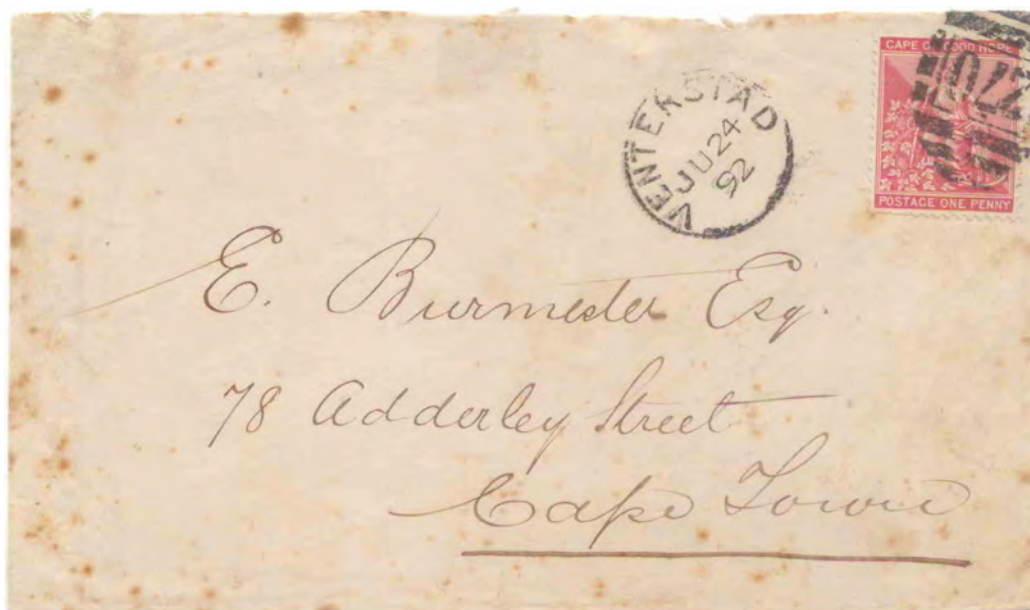 CAPE OF GOOD HOPE
POSTAGE ONE PENNY
VENTERSTAD
JU 24
92
E. Burmester Esq.
78 Adderley Street
Cape Town